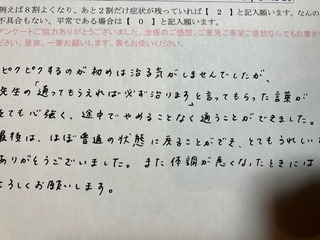 例えば８割よくなり、あと２割だけ症状が残っていれば【　２　】と記入願います。なんの
不具合もない、平常である場合は【　０　】と記入願います。
アンケートご協力ありがとうございました。治療のご感想、ご意見ご要望ご感想なんでもお書き
ください。是非、一筆お願いします。裏もお使いください。
ピクピクするのが初めは治る気がしませんでしたが、
先生の「通ってもらえれば必ず治ります」と言ってもらった言葉が
とても心強く、途中でやめることなく通うことができました。
最後は、ほぼ普通の状態に戻ることができ、とてもうれしい
ありがとうございました。また体調が悪くなったときには
よろしくお願いします。